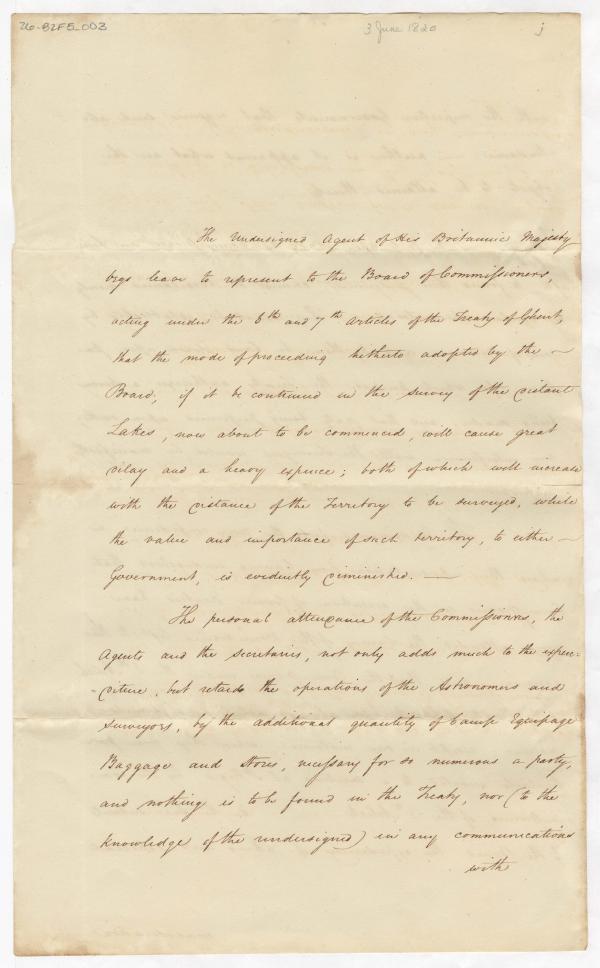 26-B2F5_003
3 June 1820
j
The Undersigned Agent of His Britannic Majesty
begs leave to represent to the Board of Commissioners,
acting under the 6th and 7th Articles of the Treaty of Ghent,
that the mode of proceeding hitherto adopted by the —
Board, if it be continued in the survey of the distant
Lakes, now about to be commenced, will cause great
delay and a heavy expence; both of which will increase
with the distance of the Territory to be surveyed, while
the value and importance of such territory, to either —
Government, is evidently diminished. —
The personal attendance of the Commissioners, the
Agents and the Secretaries, not only adds much to the expen-
-diture, but retards the operations of the Astronomers and
Surveyors, by the additional quantity of Camp Equipage
Baggage and Stores, necessary for so numerous a party,
and nothing is to be found in the Treaty, nor (to the
knowledge of the undersigned) in any communications
with